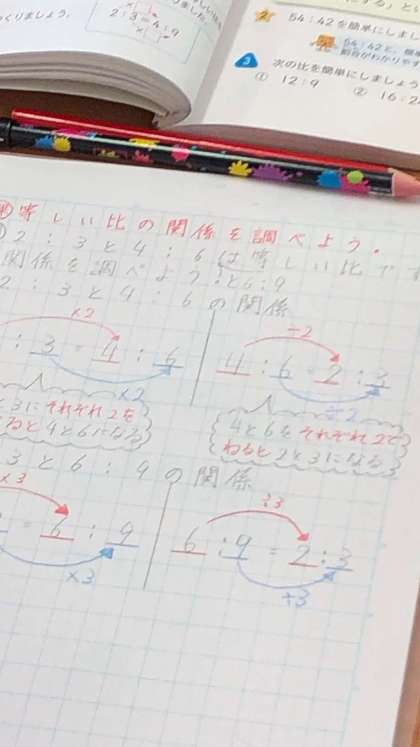 くりましょう。
2:3=4:9
2 54:42を簡単にしまし
54:42と、
割合がわかりやす
3 次の比を簡単にしましょう
① 12:9 ② 16:2
等しい比の関係を調べよう。
2:3と4:6は等しい比です
関係を調べよう。と6:9
2:3と4:6の関係
×2
:3=4:6
×2
÷2
4:6=2:3
÷2
と3にそれぞれ2を
ると4と6になる
4と6をそれぞれ2で
わると2と3になる
3と6:9の関係
×3
=6:9
×3
÷3
6:9=2:3
÷3